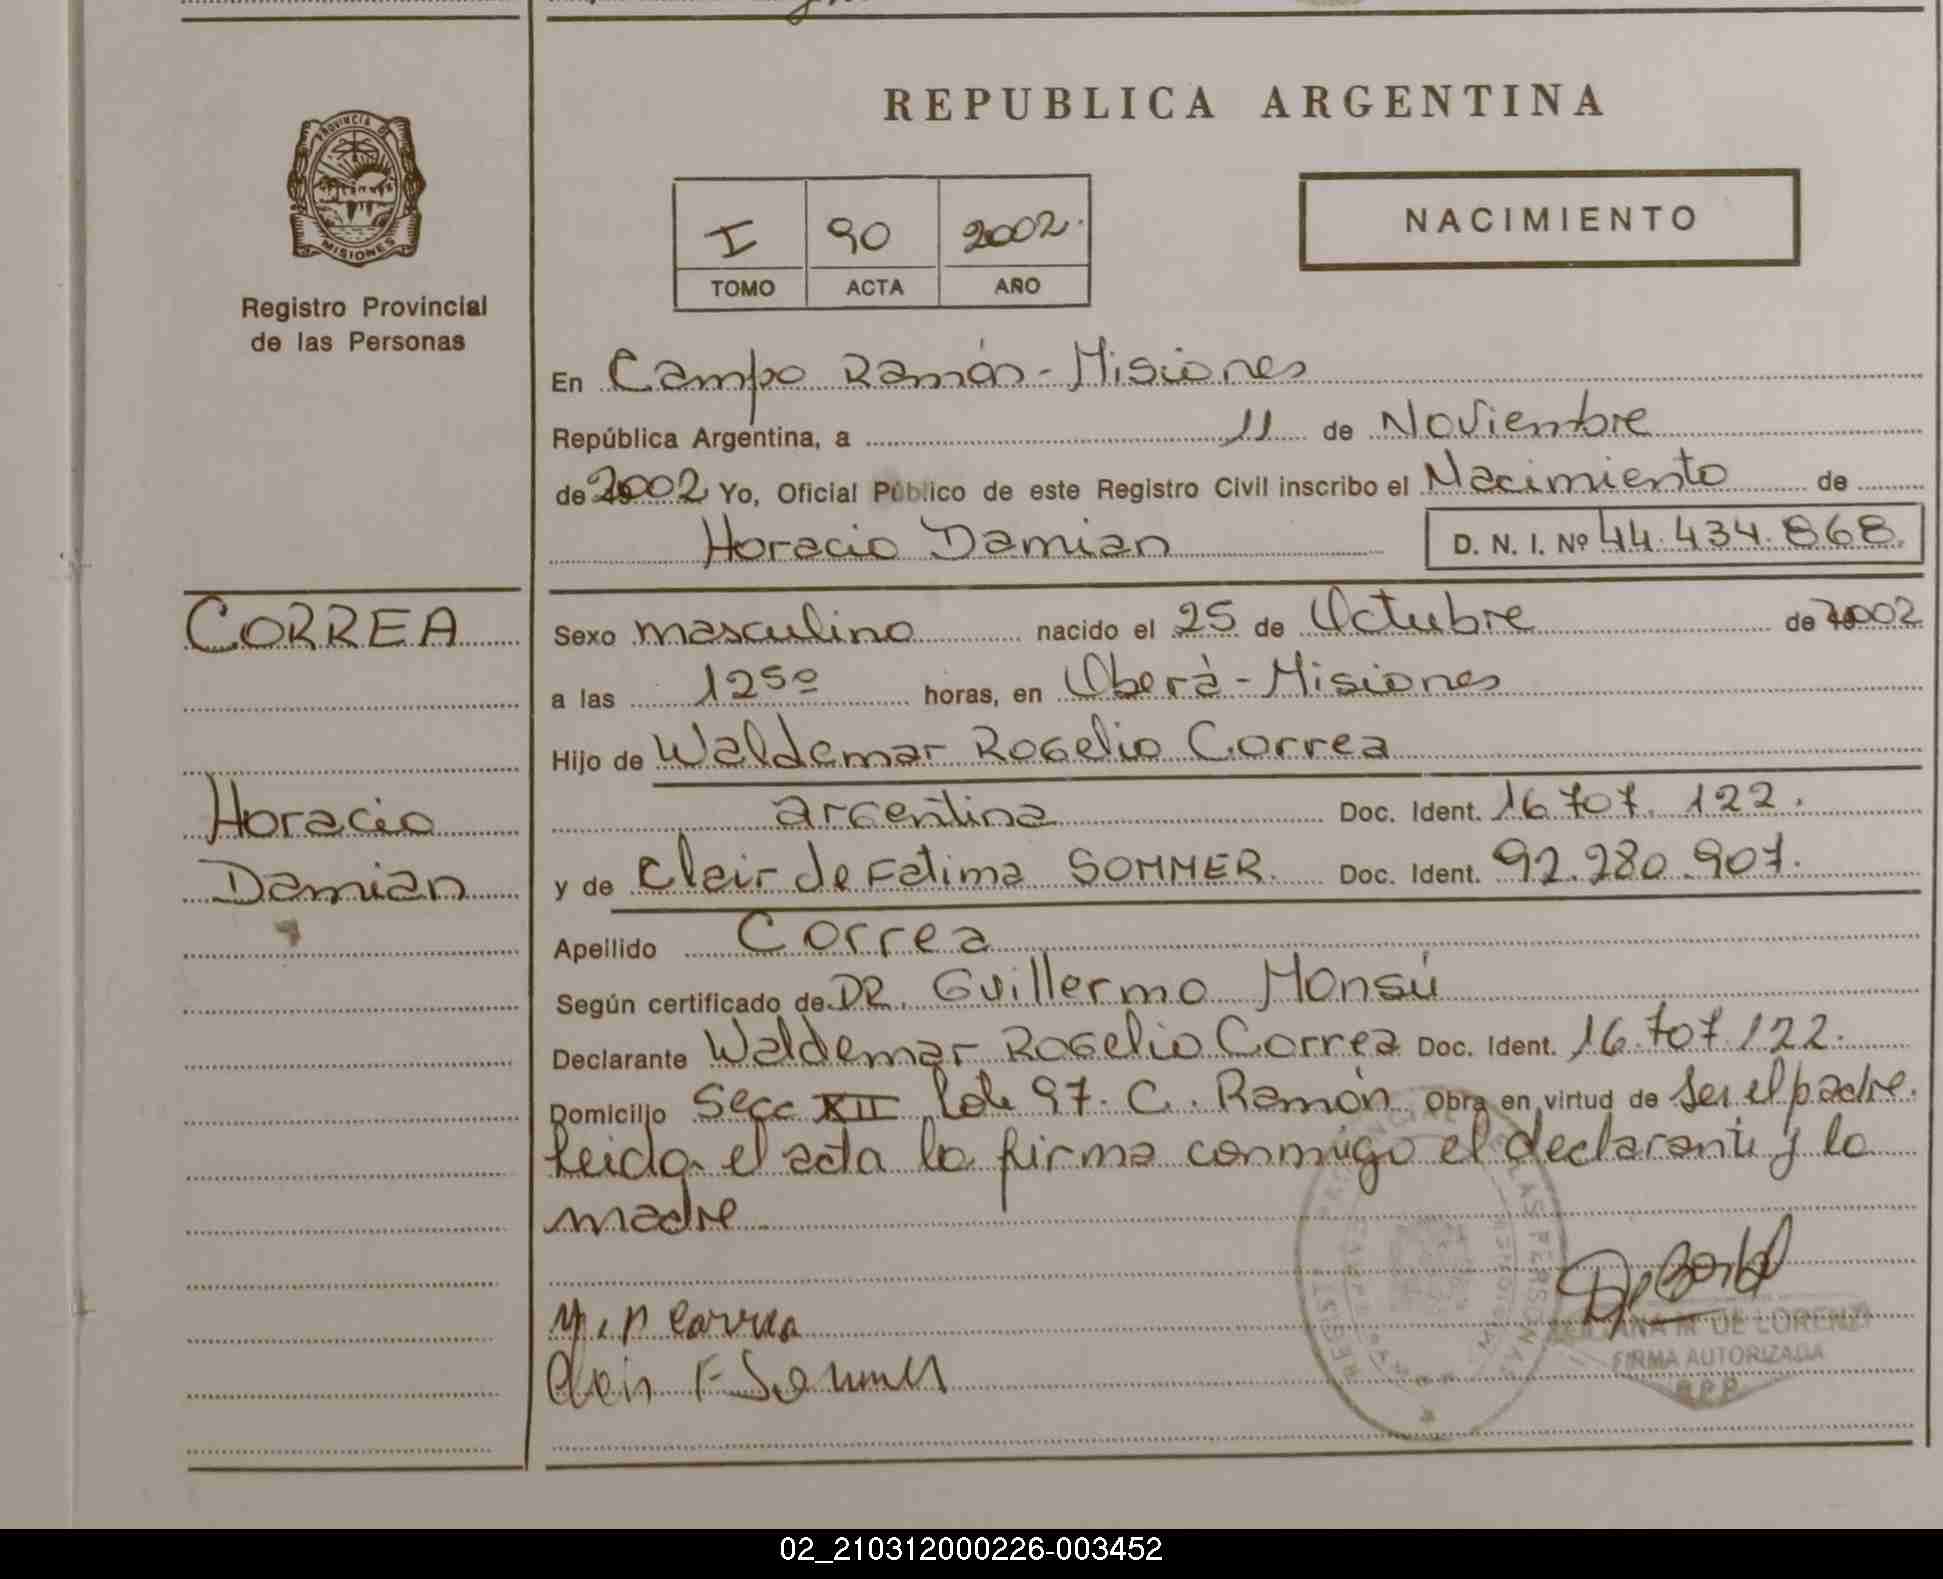 REPUBLICA ARGENTINA
PROVINCIA DE
MISIONES
Registro Provincial
de las Personas
I 90 2002.
TOMO ACTA AÑO
NACIMIENTO
En Campo Ramón - Misiones
República Argentina, a 11 de Noviembre
de 2002 Yo, Oficial Público de este Registro Civil inscribo el Nacimiento de
Horacio Damian D. N. I. Nº 44.434.868.
CORREA
Horacio
Damian
Sexo masculino nacido el 25 de Octubre de 2002
a las 12⁵⁰ horas, en Oberá - Misiones
Hijo de Waldemar Rogelio Correa
argentina Doc. Ident. 16.707.122.
y de Clair de Fatima SOMMER. Doc. Ident. 92.280.907.
Apellido Correa
Según certificado de DR. Guillermo Monsú
Declarante Waldemar Rogelio Correa Doc. Ident. 16.707.122.
Domicilio Secc XII lote 97. C. Ramón Obra en virtud de ser el padre.
Leida el acta la firma conmigo el declarante y la
madre
Correa
Clair F Sommer
DE LORENZI
FIRMA AUTORIZADA
R.P.P.
02_210312000226-003452